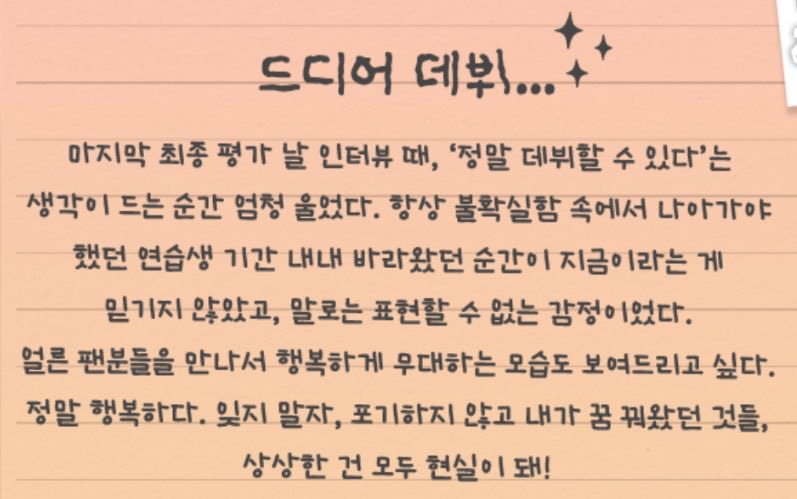 드디어 데뷔...
마지막 최종 평가 날 인터뷰 때, ‘정말 데뷔할 수 있다’는
생각이 드는 순간 엄청 울었다. 항상 불확실함 속에서 나아가야
했던 연습생 기간 내내 바라왔던 순간이 지금이라는 게
믿기지 않았고, 말로는 표현할 수 없는 감정이었다.
얼른 팬분들을 만나서 행복하게 무대하는 모습도 보여드리고 싶다.
정말 행복하다. 잊지 말자, 포기하지 않고 내가 꿈 꿔왔던 것들,
상상한 건 모두 현실이 돼!